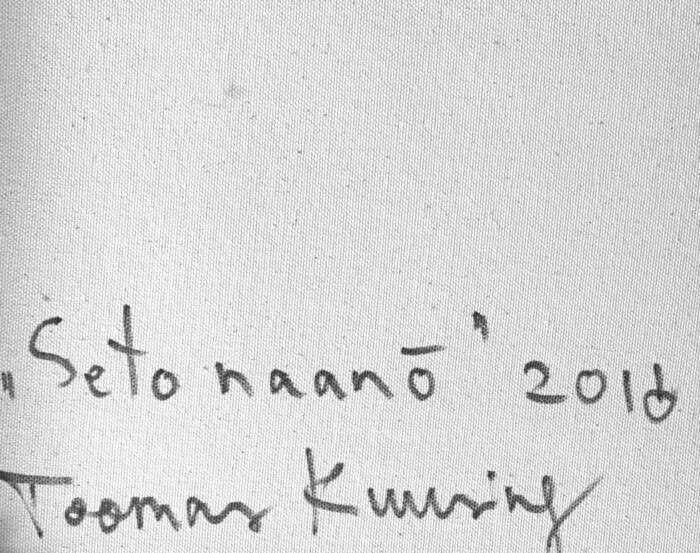 „Seto naanõ" 2016
Toomas Kuusing